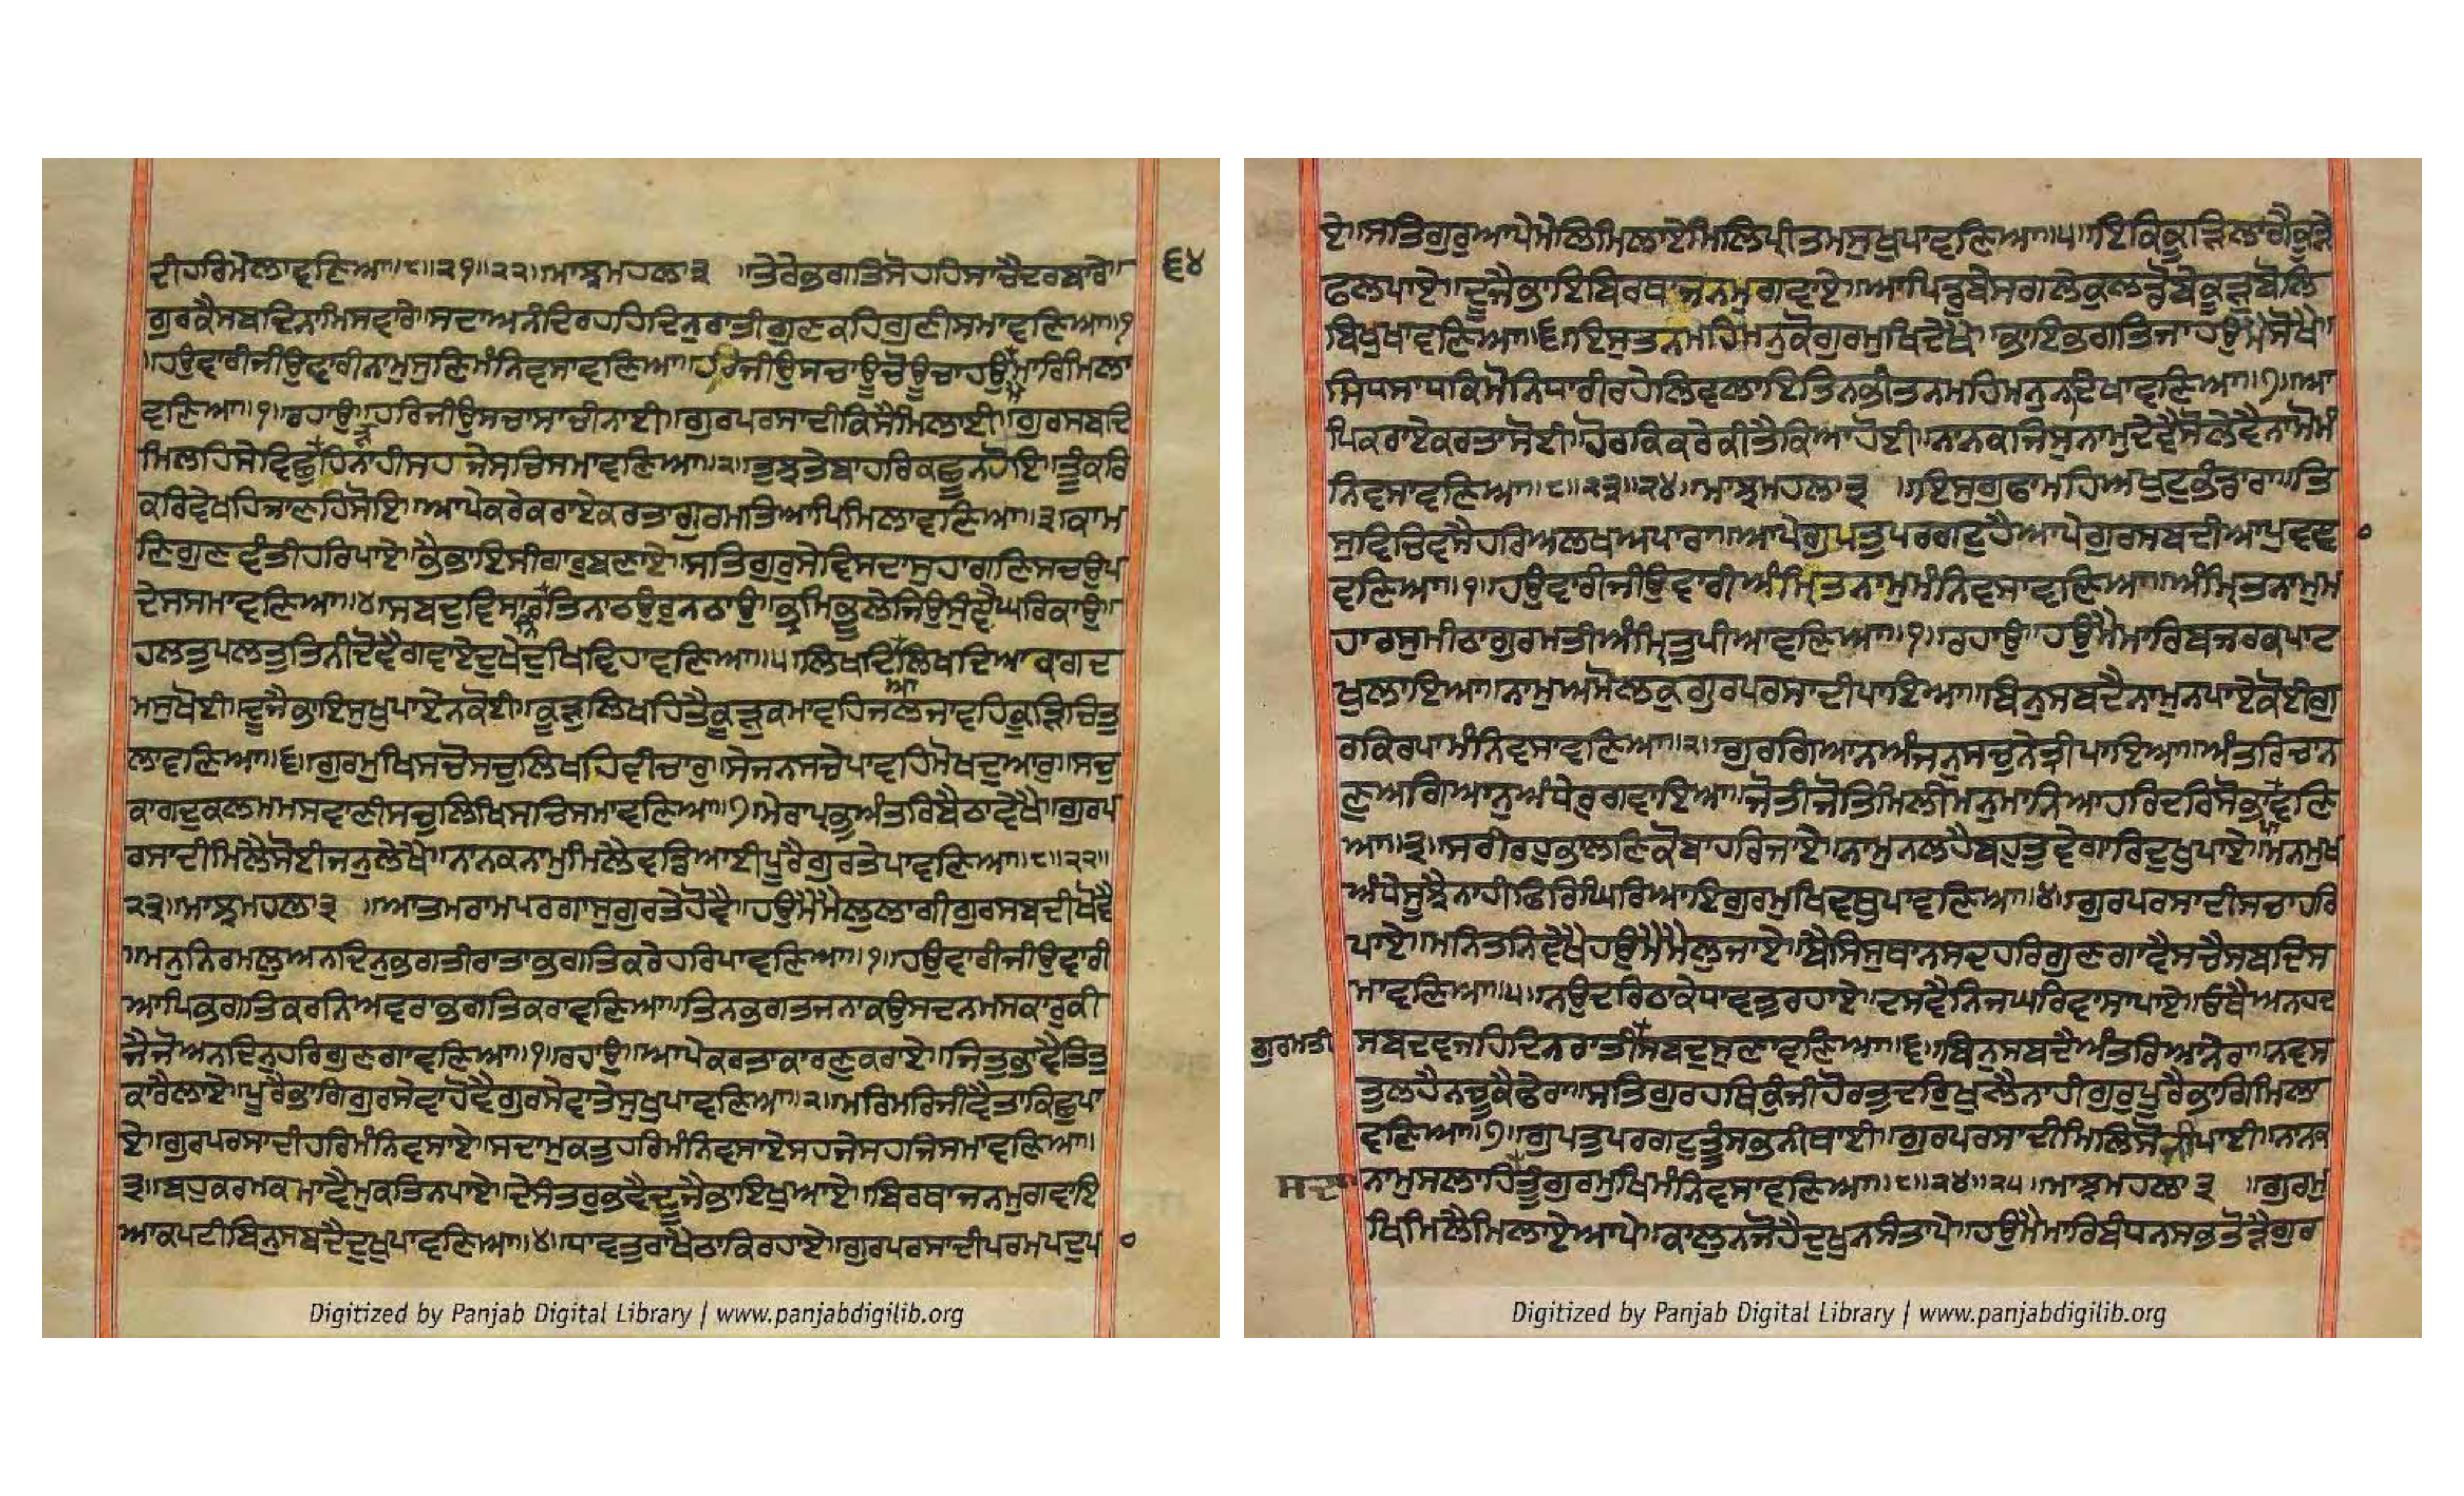 ਦੀਹਰਿਮੇਲਾਵਣਿਆ॥੮॥੨੧॥੨੨॥ਮਾਝਮਹਲਾ੩ ॥ਤੇਰੇਭਗਤਿਸੋਹਹਿਸਾਚੈਦਰਬਾਰੇ॥ ੬੪
ਗੁਰਕੈਸਬਦਿਨਾਮਿਸਵਾਰੇ॥ਸਦਾਅਨੰਦਿਰਹਹਿਦਿਨੁਰਾਤੀਗੁਣਕਹਿਗੁਣੀਸਮਾਵਣਿਆ॥੧
॥ਹਉਵਾਰੀਜੀਉਵਾਰੀਨਾਮੁਸੁਣਿਮੰਨਿਵਸਾਵਣਿਆ॥ਹਰਿਜੀਉਸਚਾਊਚੋਊਚਾਹਉਮੈਮਾਰਿਮਿਲਾ
ਵਣਿਆ॥੧॥ਰਹਾਉ॥ਹਰਿਜੀਉਸਚਾਸਾਚੀਨਾਈ॥ਗੁਰਪਰਸਾਦੀਕਿਸੈਮਿਲਾਈ॥ਗੁਰਸਬਦਿ
ਮਿਲਹਿਸੇਵਿਛੁੜਹਿਨਾਹੀਸਹਜੇਸਚਿਸਮਾਵਣਿਆ॥੨॥ਤੁਝਤੇਬਾਹਰਿਕਛੂਨਹੋਇ॥ਤੂੰਕਰਿ
ਕਰਿਵੇਖਹਿਜਾਣਹਿਸੋਇ॥ਆਪੇਕਰੇਕਰਾਏਕਰਤਾਗੁਰਮਤਿਆਪਿਮਿਲਾਵਣਿਆ॥੩॥ਕਾਮ
ਣਿਗੁਣਵੰਤੀਹਰਿਪਾਏ॥ਭੈਭਾਇਸੀਗਾਰੁਬਣਾਏ॥ਸਤਿਗੁਰੁਸੇਵਿਸਦਾਸੁਹਾਗਣਿਸਚਉਪ
ਦੇਸਸਮਾਵਣਿਆ॥੪॥ਸਬਦੁਵਿਸਾਰਨਿਤਿਨਾਠਉਰੁਨਠਾਉ॥ਭ੍ਰਮਿਭੂਲੇਜਿਉਸੁੰਞੈਘਰਿਕਾਉ॥
ਹਲਤੁਪਲਤੁਤਿਨੀਦੋਵੈਗਵਾਏਦੁਖੇਦੁਖਿਵਿਹਾਵਣਿਆ॥੫॥ਲਿਖਦਿਆਲਿਖਦਿਆਕਾਗਦ
ਮਸੁਖੋਈ॥ਦੂਜੈਭਾਇਸੁਖੁਪਾਏਨਕੋਈ॥ਕੂੜੁਲਿਖਹਿਤੈਕੂੜੁਕਮਾਵਹਿਜਲਜਾਵਹਿਕੂੜਿਚਿਤੁ
ਲਾਵਣਿਆ॥੬॥ਗੁਰਮੁਖਿਸਚੋਸਚੁਲਿਖਹਿਵੀਚਾਰੁ॥ਸੇਜਨਸਚੇਪਾਵਹਿਮੋਖਦੁਆਰੁ॥ਸਚੁ
ਕਾਗਦੁਕਲਮਮਸਵਾਣੀਸਚੁਲਿਖਿਸਚਿਸਮਾਵਣਿਆ॥੭॥ਮੇਰਾਪ੍ਰਭੁਅੰਤਰਿਬੈਠਾਵੇਖੈ॥ਗੁਰਪ
ਰਸਾਦੀਮਿਲੈਸੋਈਜਨੁਲੇਖੈ॥ਨਾਨਕਨਾਮੁਮਿਲੈਵਡਿਆਈਪੂਰੈਗੁਰਤੇਪਾਵਣਿਆ॥੮॥੨੨॥
੨੩॥ਮਾਝਮਹਲਾ੩ ॥ਆਤਮਰਾਮਪਰਗਾਸੁਗੁਰਤੇਹੋਵੈ॥ਹਉਮੈਮੈਲੁਲਾਗੀਗੁਰਸਬਦੀਖੋਵੈ
॥ਮਨੁਨਿਰਮਲੁਅਨਦਿਨੁਭਗਤੀਰਾਤਾਭਗਤਿਕਰੇਹਰਿਪਾਵਣਿਆ॥੧॥ਹਉਵਾਰੀਜੀਉਵਾਰੀ
ਆਪਿਭਗਤਿਕਰਨਿਅਵਰਾਭਗਤਿਕਰਾਵਣਿਆ॥ਤਿਨਭਗਤਜਨਾਕਉਸਦਨਮਸਕਾਰੁਕੀ
ਜੈਜੋਅਨਦਿਨੁਹਰਿਗੁਣਗਾਵਣਿਆ॥੧॥ਰਹਾਉ॥ਆਪੇਕਰਤਾਕਾਰਣੁਕਰਾਏ॥ਜਿਤੁਭਾਵੈਤਿਤੁ
ਕਾਰੈਲਾਏ॥ਪੂਰੈਭਾਗਿਗੁਰਸੇਵਾਹੋਵੈਗੁਰਸੇਵਾਤੇਸੁਖੁਪਾਵਣਿਆ॥੨॥ਮਰਿਮਰਿਜੀਵੈਤਾਕਿਛੁਪਾ
ਏ॥ਗੁਰਪਰਸਾਦੀਹਰਿਮੰਨਿਵਸਾਏ॥ਸਦਾਮੁਕਤੁਹਰਿਮੰਨਿਵਸਾਏਸਹਜੇਸਹਜਿਸਮਾਵਣਿਆ॥
੩॥ਬਹੁਕਰਮਕਮਾਵੈਮੁਕਤਿਨਪਾਏ॥ਦੇਸੰਤਰੁਭਵੈਦੂਜੈਭਾਇਖੁਆਏ॥ਬਿਰਥਾਜਨਮੁਗਵਾਇ
ਆਕਪਟੀਬਿਨੁਸਬਦੈਦੁਖੁਪਾਵਣਿਆ॥੪॥ਧਾਵਤੁਰਾਖੈਠਾਕਿਰਹਾਏ॥ਗੁਰਪਰਸਾਦੀਪਰਮਪਦੁਪ
ਏ॥ਸਤਿਗੁਰੁਆਪੇਮੇਲਿਮਿਲਾਏਮਿਲਿਪ੍ਰੀਤਮਸੁਖੁਪਾਵਣਿਆ॥੫॥ਇਕਿਕੂੜਿਲਾਗੈਕੂੜੇ
ਫਲਪਾਏ॥ਦੂਜੈਭਾਇਬਿਰਥਾਜਨਮੁਗਵਾਏ॥ਆਪਿਡੁਬੇਸਗਲੇਕੁਲਡੋਬੇਕੂੜੁਬੋਲਿ
ਬਿਖੁਖਾਵਣਿਆ॥੬॥ਇਸੁਤਨਮਹਿਮਨੁਕੋਗੁਰਮੁਖਿਦੇਖੈ॥ਭਾਇਭਗਤਿਜਾਹਉਮੈਸੋਖੈ॥
ਸਿਧਸਾਧਕਿਮੋਨਿਧਾਰੀਰਹੇਲਿਵਲਾਇਤਿਨਭੀਤਨਮਹਿਮਨੁਨਦਿਖਾਵਣਿਆ॥੭॥ਆ
ਪਿਕਰਾਏਕਰਤਾਸੋਈ॥ਹੋਰਕਿਕਰੇਕੀਤੈਕਿਆਹੋਈ॥ਨਾਨਕਜਿਸੁਨਾਮੁਦੇਵੈਸੋਲੇਵੈਨਾਮੋਮੰ
ਨਿਵਸਾਵਣਿਆ॥੮॥੨੩॥੨੪॥ਮਾਝਮਹਲਾ੩ ॥ਇਸੁਗੁਫਾਮਹਿਅਖੁਟਭੰਡਾਰਾ॥ਤਿ
ਸੁਵਿਚਿਵਸੈਹਰਿਅਲਖਅਪਾਰਾ॥ਆਪੇਗੁਪਤੁਪਰਗਟੁਹੈਆਪੇਗੁਰਸਬਦੀਆਪੁਵਞ
ਵਣਿਆ॥੧॥ਹਉਵਾਰੀਜੀਉਵਾਰੀਅੰਮ੍ਰਿਤਨਾਮੁਮੰਨਿਵਸਾਵਣਿਆ॥ਅੰਮ੍ਰਿਤਨਾਮੁਮ
ਹਾਰਸੁਮੀਠਾਗੁਰਮਤੀਅੰਮ੍ਰਿਤੁਪੀਆਵਣਿਆ॥੧॥ਰਹਾਉ॥ਹਉਮੈਮਾਰਿਬਜਰਕਪਾਟ
ਖੁਲਾਇਆ॥ਨਾਮੁਅਮੋਲਕੁਗੁਰਪਰਸਾਦੀਪਾਇਆ॥ਬਿਨੁਸਬਦੈਨਾਮੁਨਪਾਏਕੋਈਗੁ
ਰਕਿਰਪਾਮੰਨਿਵਸਾਵਣਿਆ॥੨॥ਗੁਰਗਿਆਨਅੰਜਨੁਸਚੁਨੇਤ੍ਰੀਪਾਇਆ॥ਅੰਤਰਿਚਾਨ
ਣੁਅਗਿਆਨੁਅੰਧੇਰੁਗਵਾਇਆ॥ਜੋਤੀਜੋਤਿਮਿਲੀਮਨੁਮਾਨਿਆਹਰਿਦਰਿਸੋਭਾਪਾਵਣਿ
ਆ॥੩॥ਸਰੀਰਹੁਭਾਲਣਿਕੋਬਾਹਰਿਜਾਏ॥ਨਾਮੁਨਲਹੈਬਹੁਤੁਵੇਗਾਰਿਦੁਖੁਪਾਏ॥ਮਨਮੁਖ
ਅੰਧੇਸੂਝੈਨਾਹੀਫਿਰਿਘਿਰਿਆਇਗੁਰਮੁਖਿਵਥੁਪਾਵਣਿਆ॥੪॥ਗੁਰਪਰਸਾਦੀਸਚਾਹਰਿ
ਪਾਏ॥ਮਨਿਤਨਿਵੇਖੈਹਉਮੈਮੈਲੁਜਾਏ॥ਬੈਸਿਸੁਥਾਨਸਦਹਰਿਗੁਣਗਾਵੈਸਚੈਸਬਦਿਸ
ਮਾਵਣਿਆ॥੫॥ਨਉਦਰਿਠਾਕੇਧਾਵਤੁਰਹਾਏ॥ਦਸਵੈਨਿਜਘਰਿਵਾਸਾਪਾਏ॥ਓਥੈਅਨਹਦ
ਗੁਰਮਤੀ ਸਬਦਵਜਹਿਦਿਨਰਾਤੀਸਬਦੁਸੁਣਾਵਣਿਆ॥੬॥ਬਿਨੁਸਬਦੈਅੰਤਰਿਆਨੇਰਾ॥ਨਵਸ
ਤੁਲਹੈਨਚੂਕੈਫੇਰਾ॥ਸਤਿਗੁਰਹਥਿਕੁੰਜੀਹੋਰਤੁਦਰਿਖੁਲੈਨਾਹੀਗੁਰੁਪੂਰੈਭਾਗਿਮਿਲਾ
ਵਣਿਆ॥੭॥ਗੁਪਤੁਪਰਗਟੁਤੂੰਸਭਨੀਥਾਈ॥ਗੁਰਪਰਸਾਦੀਮਿਲਿਸੋਝੀਪਾਈ॥ਨਾਨਕ
ਸਦਾ ਨਾਮੁਸਲਾਹਿਤੂੰਗੁਰਮੁਖਿਮੰਨਿਵਸਾਵਣਿਆ॥੮॥੨੪॥੨੫॥ਮਾਝਮਹਲਾ੩ ॥ਗੁਰਮੁ
ਖਿਮਿਲੈਮਿਲਾਏਆਪੇ॥ਕਾਲੁਨਜੋਹੈਦੁਖੁਨਸੰਤਾਪੇ॥ਹਉਮੈਮਾਰਿਬੰਧਨਸਭਤੋੜੈਗੁਰ
Digitized by Panjab Digital Library | www.panjabdigilib.org
Digitized by Panjab Digital Library | www.panjabdigilib.org